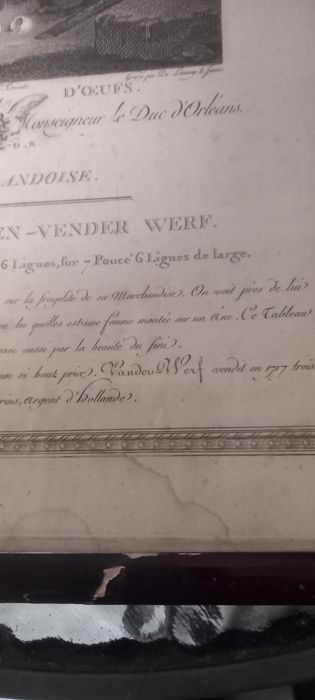 Gravé par De Launay le Jeune
D'ŒUFS.
Monseigneur le Duc d'Orléans,
ANDOISE.
EN-VENDER WERF.
6 Lignes, sur 7 Pouce 6 Lignes de large.
sur la fragilité de sa Marchandise. On voit près de lui
les quelles est une femme montée sur un Ane. Ce Tableau
aussi par la beauté du fini.
un si haut prix. Vander-Werf vendit en 1717 trois
rins, argent d'Hollande.